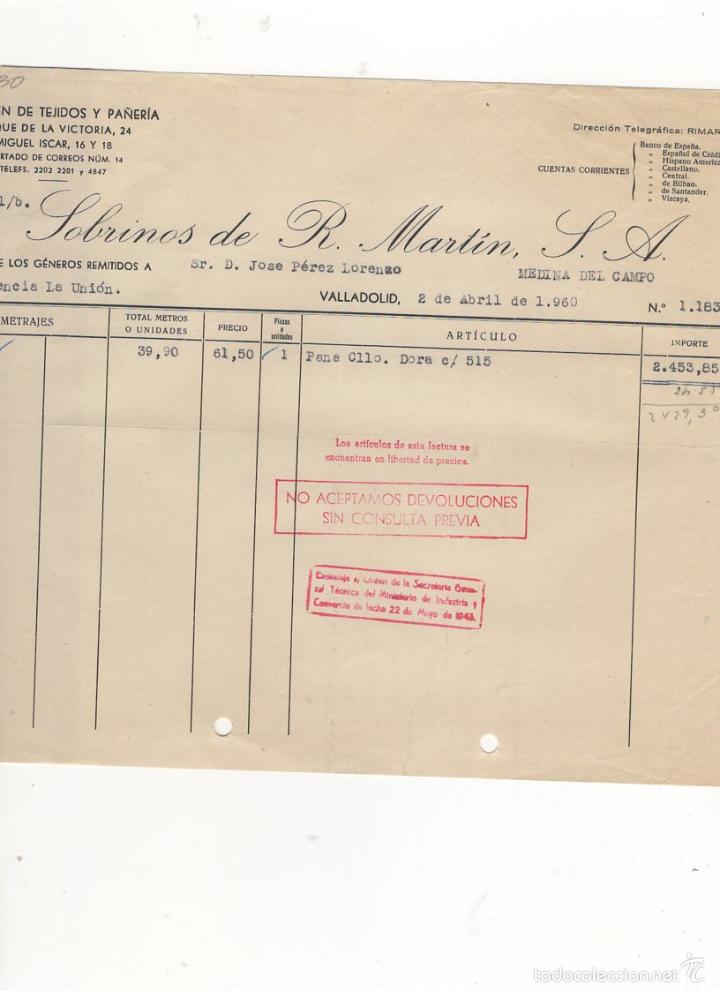 30
EN DE TEJIDOS Y PAÑERÍA
QUE DE LA VICTORIA, 24
MIGUEL ISCAR, 16 Y 18
RTADO DE CORREOS NÚM. 14
TELEFS. 2202 2201 y 4847
Dirección Telegráfica: RIMAR
CUENTAS CORRIENTES
Banco de España.
„ Español de Crédi
„ Hispano America
„ Castellano.
„ Central.
„ de Bilbao.
„ de Santander.
„ Vizcaya,
1/b.
Sobrinos de R. Martín, S. A.
E LOS GÉNEROS REMITIDOS A Sr. D. Jose Pérez Lorenzo MEDINA DEL CAMPO
encia La Unión.
VALLADOLID, 2 de Abril de 1.960 N.º 1.183
METRAJES TOTAL METROS O UNIDADES PRECIO Piezas o unidades ARTÍCULO IMPORTE
39,90 61,50 1 Pana Cllo. Dora c/ 515 2.453,85
2429,3
Los artículos de esta factura se
encuentran en libertad de precios.
NO ACEPTAMOS DEVOLUCIONES
SIN CONSULTA PREVIA
Orden de la Secretaria Gene-
ral Técnica del Ministerio de Industria y
Comercio de fecha 22 de Mayo de 1943.
todocoleccion.net